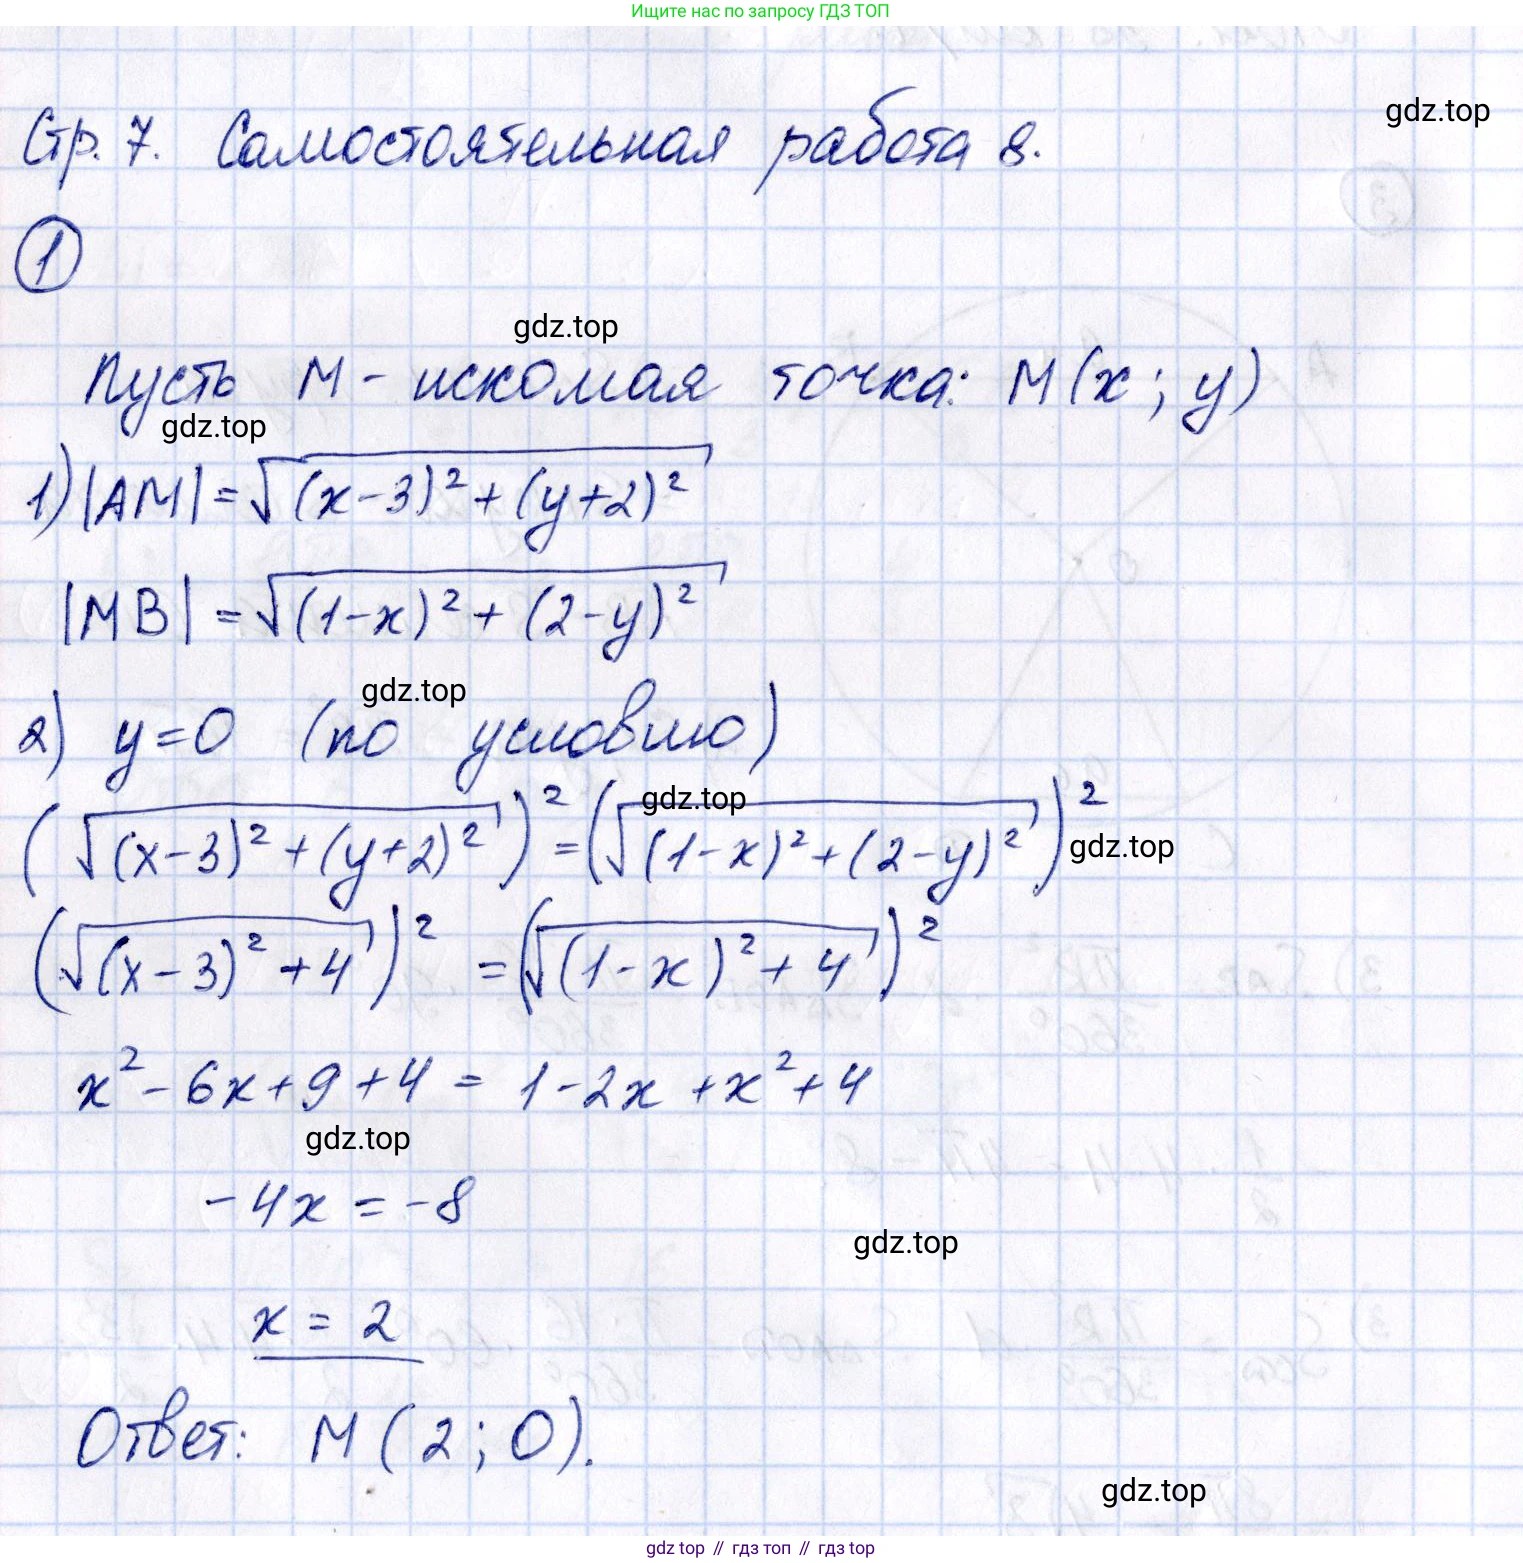 Ищите нас по запросу ГДЗ ТОП
gdz.top
Стр. 7. Самостоятельная работа 8.
1
gdz.top
Пусть M - искомая точка: M(x; y)
gdz.top
1) |AM| = √((x-3)² + (y+2)²)
|MB| = √((1-x)² + (2-y)²)
gdz.top
2) y=0 (по условию)
gdz.top
(√((x-3)² + (y+2)²))² = (√((1-x)² + (2-y)²))²
gdz.top
(√((x-3)² + 4))² = (√((1-x)² + 4))²
x² - 6x + 9 + 4 = 1 - 2x + x² + 4
gdz.top
-4x = -8
gdz.top
x = 2
Ответ: M(2; 0).
gdz.top
gdz top // гдз топ // гдз top